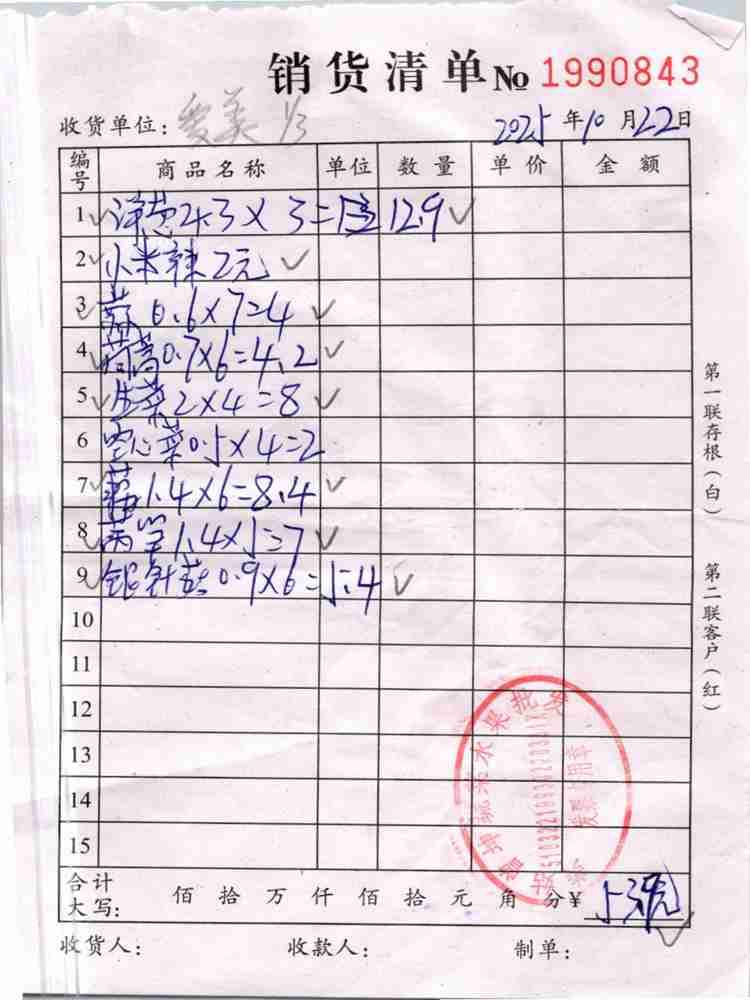 销货清单 № 1990843
收货单位: 爱美 1/3 2025年10月22日
编号 商品名称 单位 数量 单价 金额
1 洋葱 4.3×3= 12.9
2 小米辣 2元
3 0.6×7=4
4 茼蒿0.7×6=4.2
5 生菜2×4=8
6 空心菜0.5×4=2
7 1.4×6=8.4
8 莴笋1.4×5=7
9 银针菇0.9×6=5.4
10
11
12
13
14
15
合计大写: 佰 拾 万 仟 佰 拾 元 角 分¥ 53元
收货人: 收款人: 制单:
第一联存根(白) 第二联客户(红)
蔬菜水果批发
发票专用章